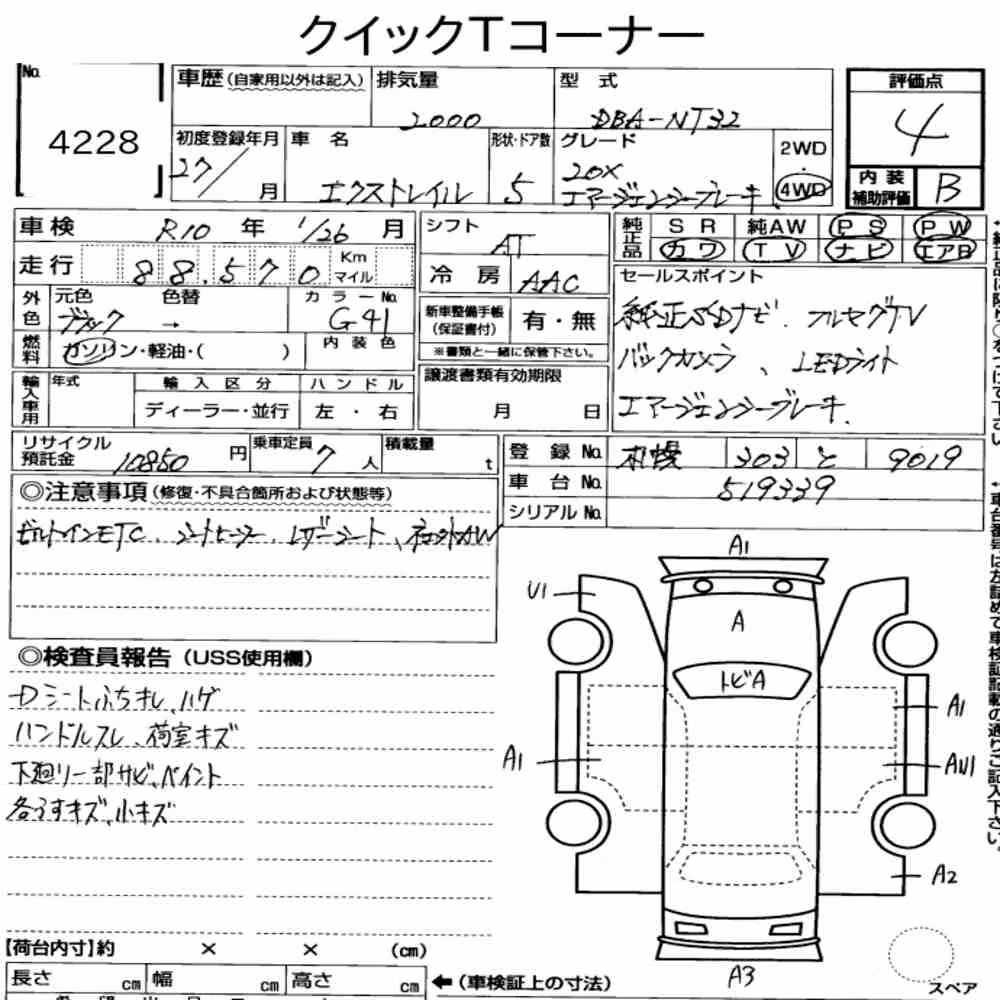 クイックTコーナー
No.
4228
車歴(自家用以外は記入)
排気量
2000
型 式
DBA-NT32
初度登録年月
27/ 月
車 名
エクストレイル
形状・ドア数
5
グレード
20X
エマージェンシーブレーキ
2WD
4WD
評価点
4
内装
補助評価
B
車検 R10 年 1/26 月
走行 88,570 Km
マイル
シフト
AT
冷 房 AAC
純正品
SR 純AW PS PW
カワ TV ナビ エアB
外色
元色 色替
ブラック →
カラーNo.
G41
燃料
ガソリン・軽油・( )
内装色
新車整備手帳
(保証書付)
有・無
※書類と一緒に保管下さい。
セールスポイント
純正SDナビ. フルセグTV
バックカメラ、LEDライト
エマージェンシーブレーキ.
輸入車用
年式
輸入区分
ディーラー・並行
ハンドル
左・右
譲渡書類有効期限
月 日
リサイクル
預託金
10850 円
乗車定員
7 人
積載量
t
登録No. 札幌 303 と 9019
車台No. 519339
シリアルNo.
◎注意事項(修復・不具合箇所および状態等)
ビルトインETC、シートヒーター、レザーシート、社外AW
◎検査員報告(USS使用欄)
Dシートふちキレ、ハゲ
ハンドルスレ、荷室キズ
下廻り一部サビ、ペイント
各うすキズ、小キズ
A1
U1
A
トビA
A1
A1
AU1
A2
A3
スペア
【荷台内寸】約 × × (cm)
長さ cm 幅 cm 高さ cm
←(車検証上の寸法)